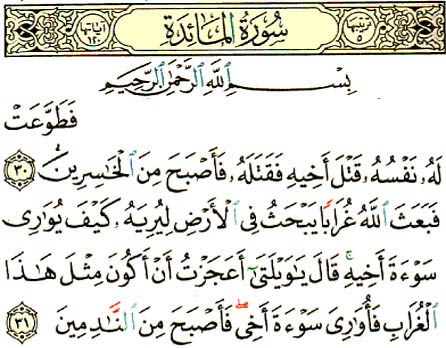 ترتيبها ٥ سُورَةُ المَائِدَةِ آياتها ١٢٠
بِسْمِ ٱللَّهِ ٱلرَّحْمَٰنِ ٱلرَّحِيمِ
فَطَوَّعَتْ
لَهُۥ نَفْسُهُۥ قَتْلَ أَخِيهِ فَقَتَلَهُۥ فَأَصْبَحَ مِنَ ٱلْخَٰسِرِينَ ٣٠
فَبَعَثَ ٱللَّهُ غُرَابًا يَبْحَثُ فِى ٱلْأَرْضِ لِيُرِيَهُۥ كَيْفَ يُوَٰرِى
سَوْءَةَ أَخِيهِ ۚ قَالَ يَٰوَيْلَتَىٰٓ أَعَجَزْتُ أَنْ أَكُونَ مِثْلَ هَٰذَا
ٱلْغُرَابِ فَأُوَٰرِىَ سَوْءَةَ أَخِى ۖ فَأَصْبَحَ مِنَ ٱلنَّٰدِمِينَ ٣١